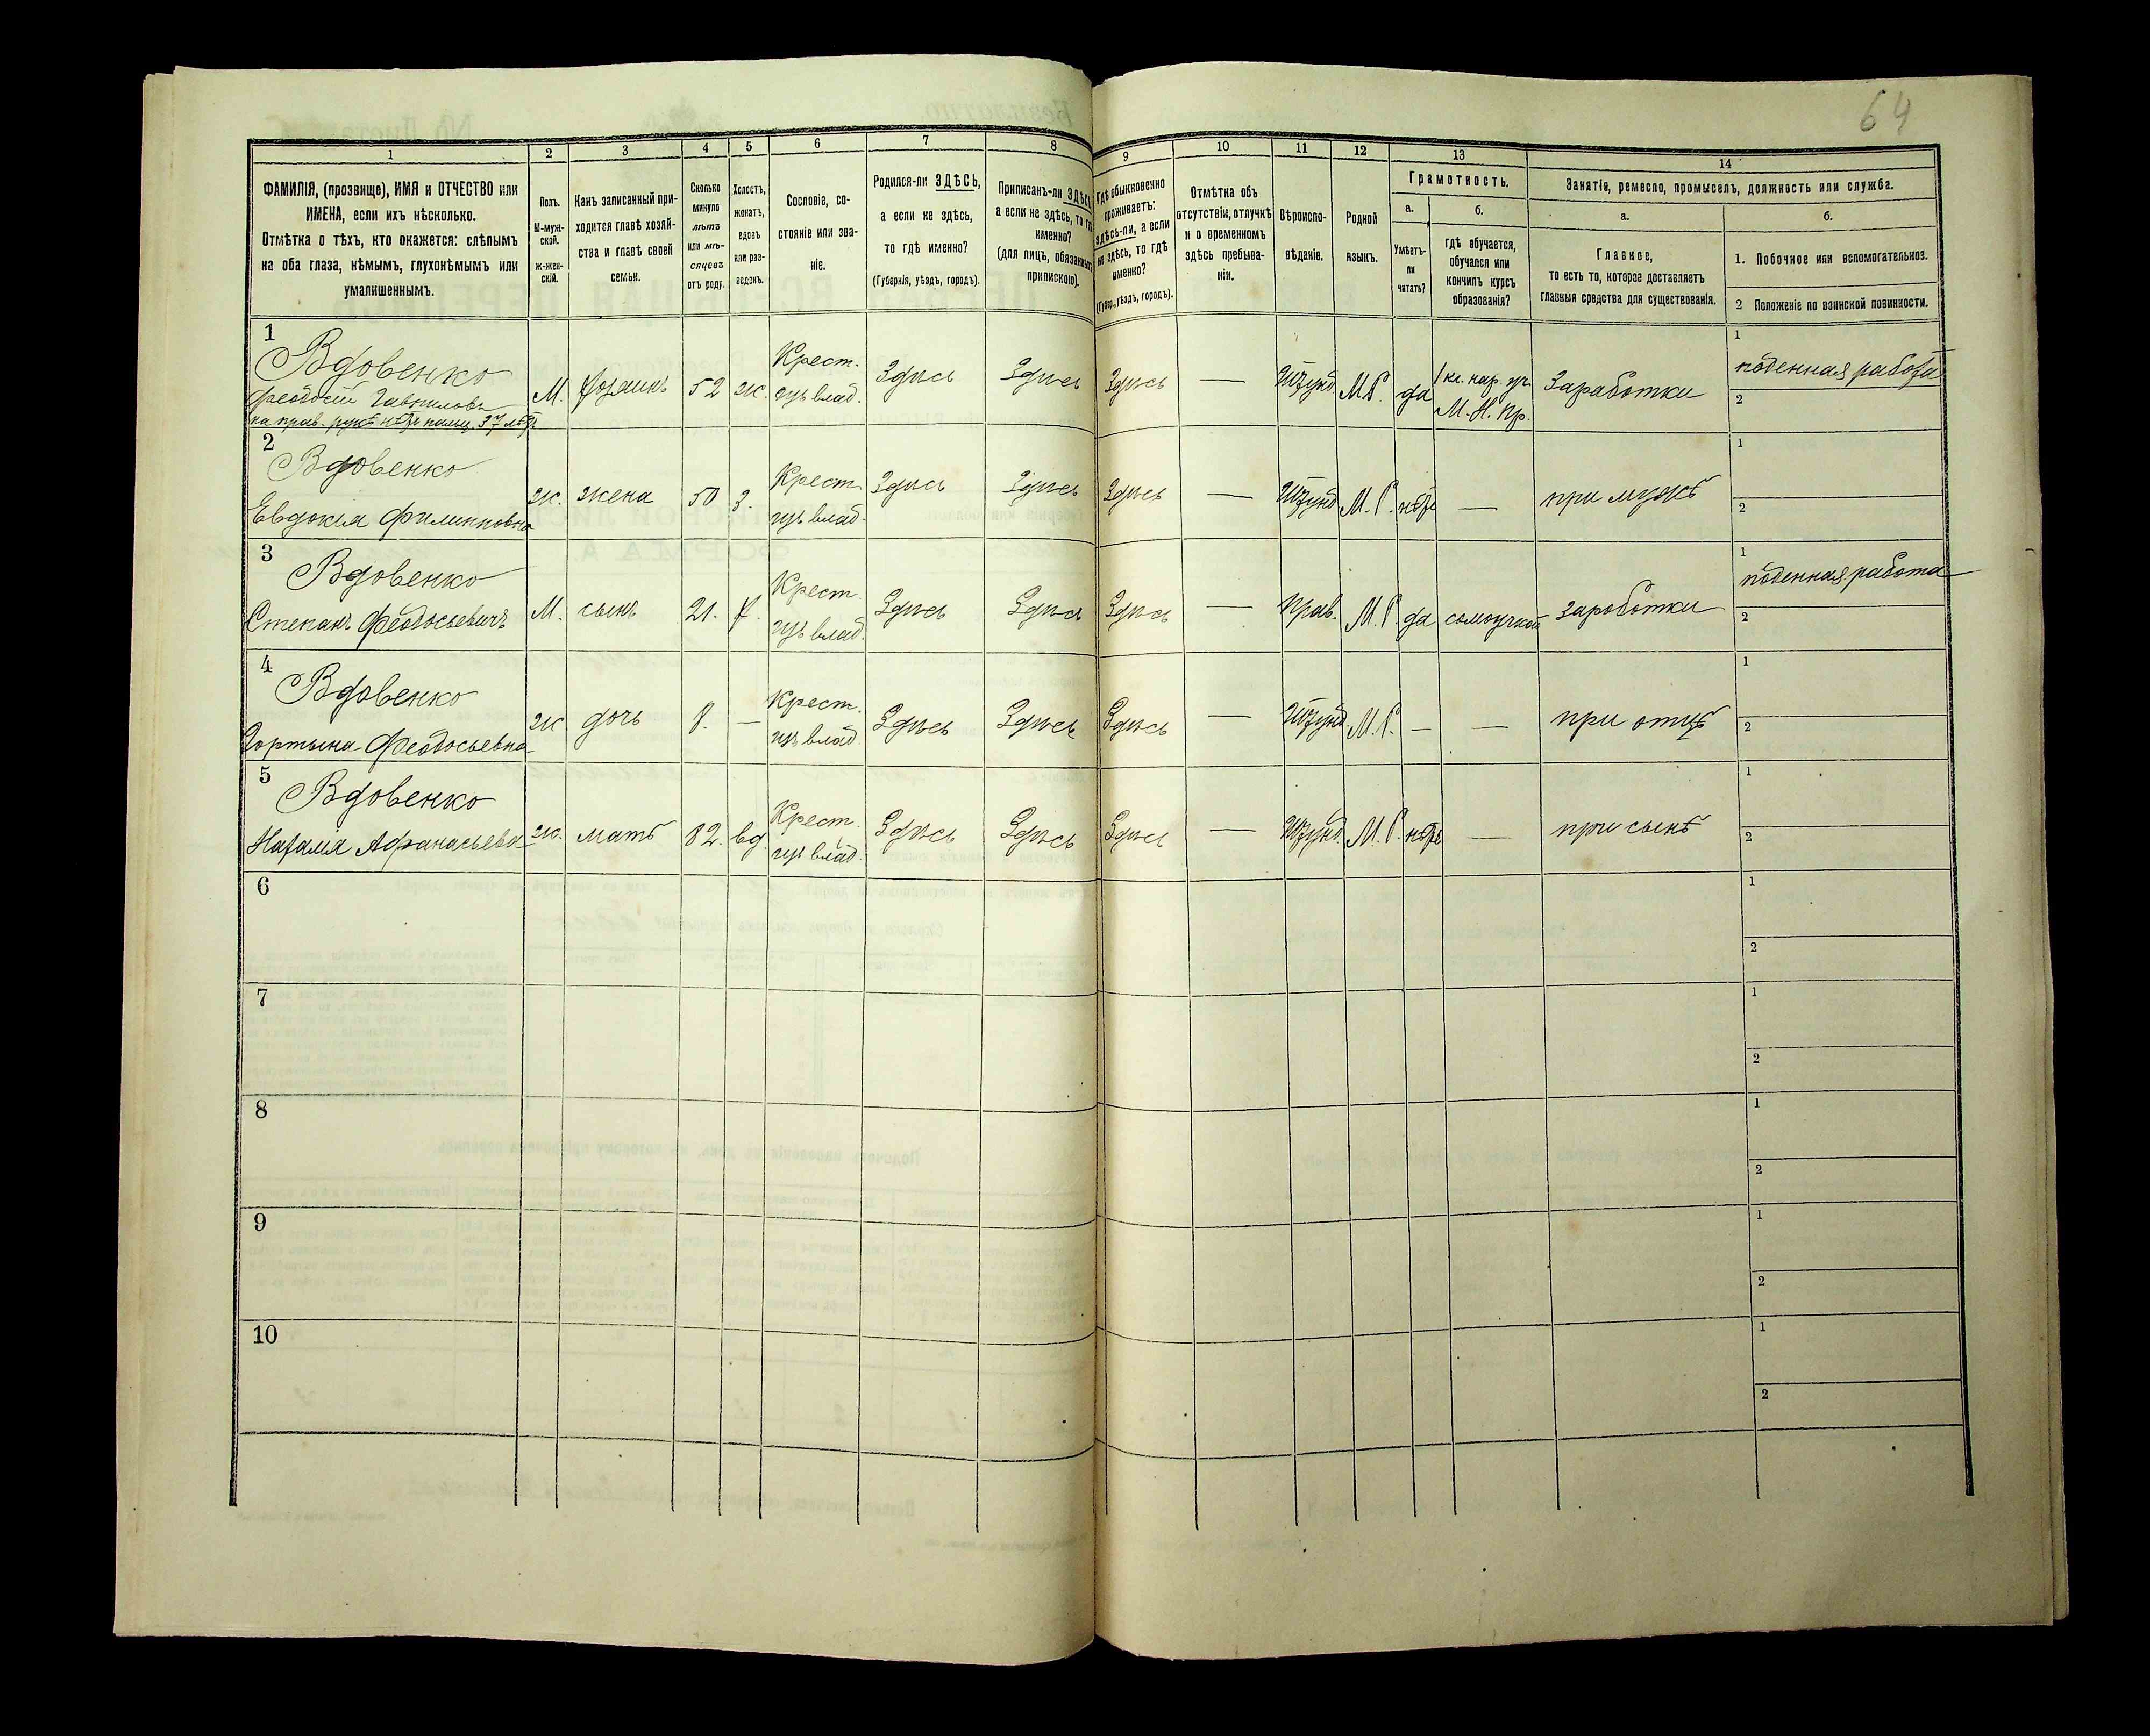 64
1 2 3 4 5 6 7 8 9 10 11 12 13 14
ФАМИЛІЯ, (прозвище), ИМЯ и ОТЧЕСТВО или
ИМЕНА, если ихъ нѣсколько.
Отмѣтка о тѣхъ, кто окажется: слѣпымъ
на оба глаза, нѣмымъ, глухонѣмымъ или
умалишеннымъ.
Полъ.
М-муж-
ской.
ж-жен-
скій.
Какъ записанный при-
ходится главѣ хозяй-
ства и главѣ своей
семьи.
Сколько
минуло
лѣтъ
или мѣ-
сяцевъ
отъ роду.
Холостъ,
женатъ,
вдовъ
или раз-
веденъ.
Сословіе, со-
стояніе или зва-
ніе.
Родился-ли ЗДѢСЬ,
а если не здѣсь,
то гдѣ именно?
(Губернія, уѣздъ, городъ).
Приписанъ-ли ЗДѢСЬ,
а если не здѣсь, то гдѣ
именно?
(для лицъ, обязанныхъ
припискою).
Гдѣ обыкновенно
проживаетъ:
здѣсь-ли, а если
не здѣсь, то гдѣ
именно?
(Губер., уѣздъ, городъ).
Отмѣтка объ
отсутствіи, отлучкѣ
и о временномъ
здѣсь пребыва-
ніи.
Вѣроиспо-
вѣданіе.
Родной
языкъ.
Грамотность.
а.
Умѣетъ-
ли
читать?
б.
гдѣ обучается,
обучался или
кончилъ курсъ
образованія?
Занятіе, ремесло, промыселъ, должность или служба.
а.
Главное,
то есть то, которое доставляетъ
главныя средства для существованія.
б.
1. Побочное или вспомогательное.
2 Положеніе по воинской повинности.
1
Вдовенко
Феодосій Гавриловъ
на прав. рукѣ нѣтъ пальц. 37 лѣтъ
М. хозяинъ 52 ж. Крест. влад. Здѣсь Здѣсь Здѣсь — Штунд. М.Р. да 1 кл. нар. уч. М. Н. Пр. Заработки
1 поденная работа
2
2
Вдовенко
Евдокія Филипповна
ж. жена 50 з. Крест. влад. Здѣсь Здѣсь Здѣсь — Штунд М.Р. нѣтъ — при мужѣ
1
2
3
Вдовенко
Степанъ Феодосьевичъ
М. сынъ 21. х. Крест. влад. Здѣсь Здѣсь Здѣсь — Прав. М.Р. да самоучкой заработки
1 поденная работа
2
4
Вдовенко
Феодосьевна
ж. дочь 8. — Крест. влад. Здѣсь Здѣсь Здѣсь — Штунд М.Р. — — при отцѣ
1
2
5
Вдовенко
Наталія Афанасьева
ж. мать 82. вд. Крест. влад. Здѣсь Здѣсь Здѣсь — Штунд. М.Р. нѣтъ — при сынѣ
1
2
6
1
2
7
1
2
8
1
2
9
1
2
10
1
2